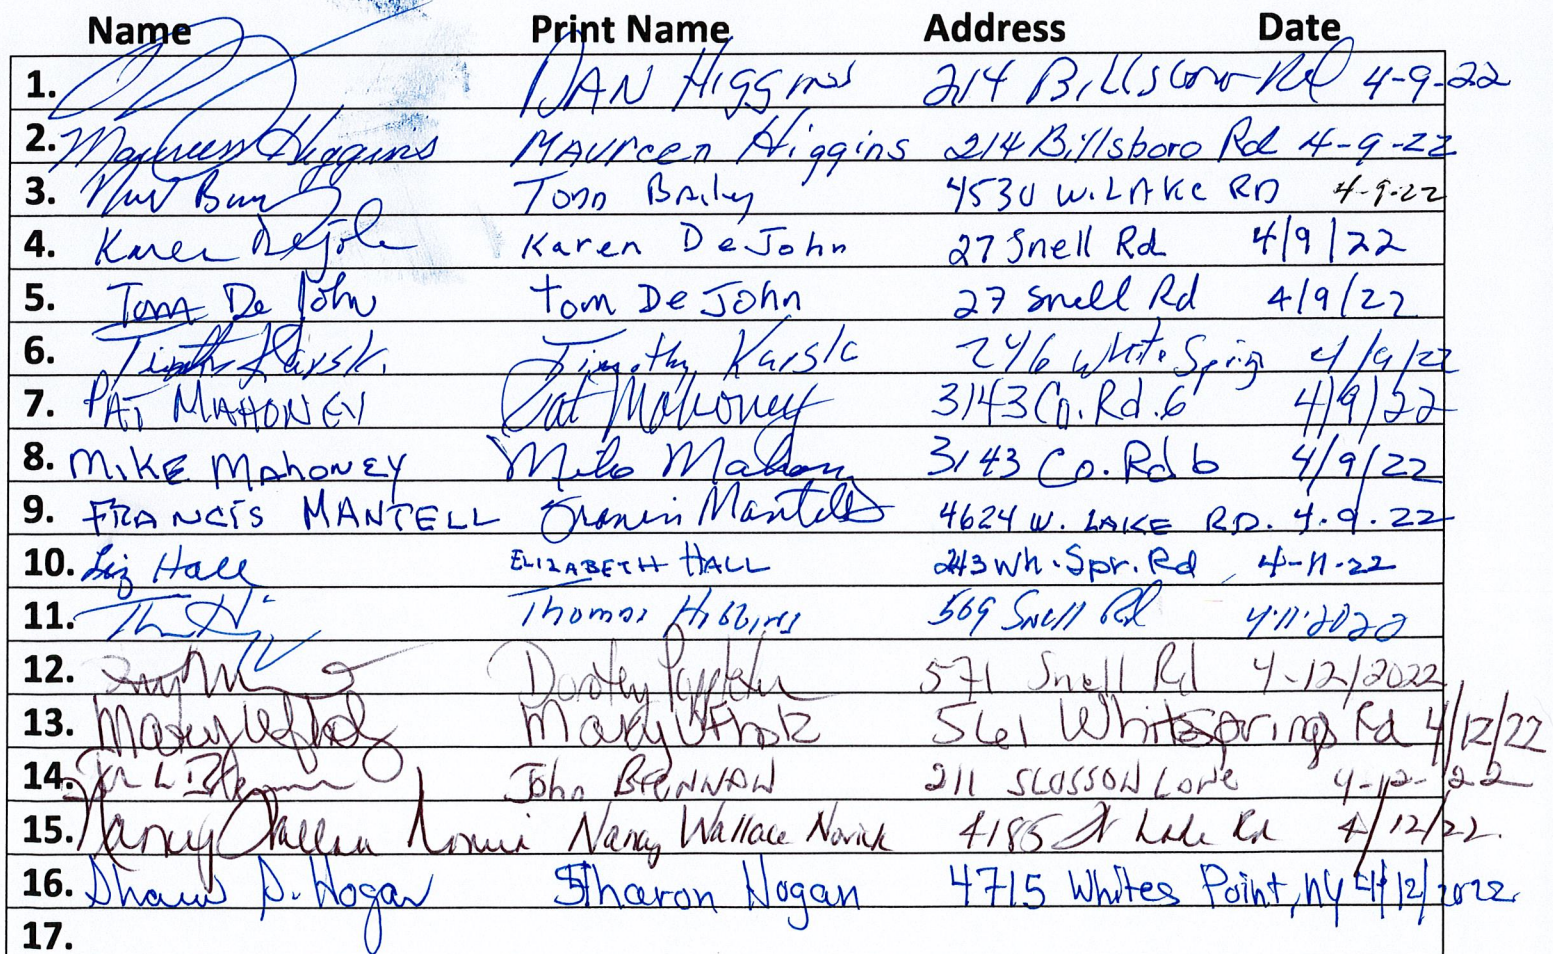 Name Print Name Address Date
1. DAN Higgins 214 Billsboro Rd 4-9-22
2. Maureen Higgins Maureen Higgins 214 Billsboro Rd 4-9-22
3. Todd Bailey 4530 W. LAKE RD 4-9-22
4. Karen DeJohn Karen DeJohn 27 Snell Rd 4/9/22
5. Tom De John Tom De John 27 Snell Rd 4/9/22
6. Timothy 246 White Spring 4/9/22
7. PAT MAHONEY Pat Mahoney 3143 Co. Rd. 6 4/9/22
8. MIKE MAHONEY Mike Mahoney 3143 Co. Rd 6 4/9/22
9. FRANCIS MANTELL Francis Mantell 4624 W. LAKE RD. 4.9.22
10. Liz Hall ELIZABETH HALL 243 Wh. Spr. Rd 4-11-22
11. Thomas Higgins 569 Snell Rd 4.11.2022
12. 571 Snell Rd 4-12/2022
13. Mary Mary 561 Whitesprings Rd 4/12/22
14. John BRENNAN 211 SLOSSON Lane 4-12-22
15. Nancy Wallace Novick Nancy Wallace Novick 4185 W Lake Rd 4/12/22.
16. Sharon Hogan 4715 Whites Point, NY 4/12/2022
17.